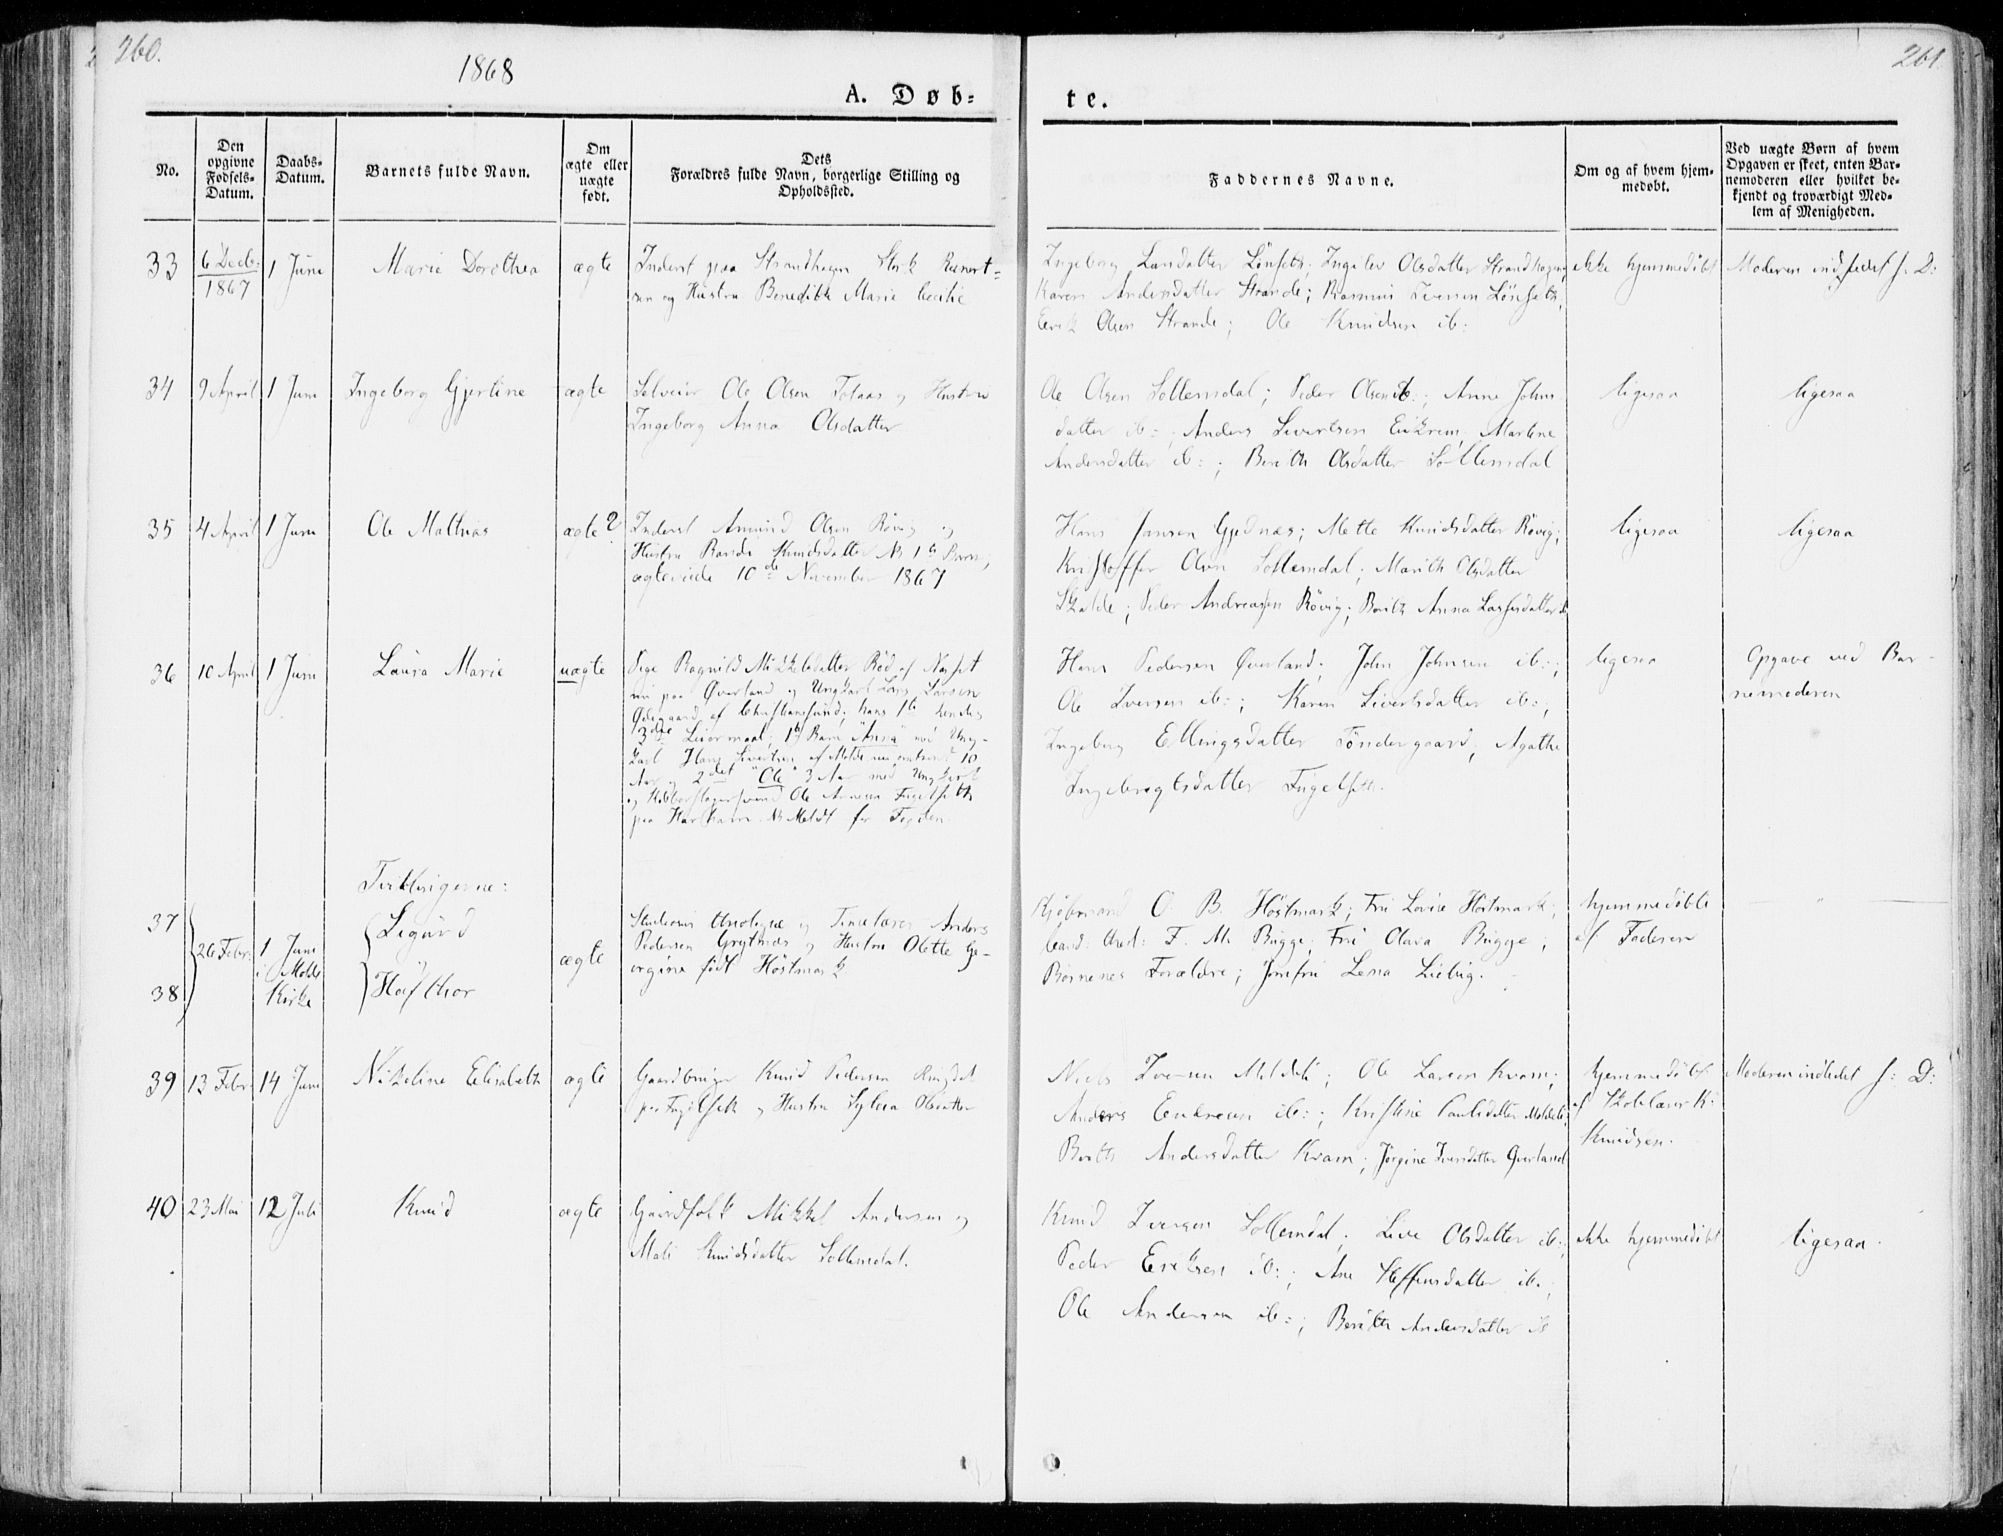 260.
1868
A. Døb-
te.
261.
No.
Den
opgivne
Fødsels-
Datum.
Daabs-
Datum.
Barnets fulde Navn.
Om
ægte eller
uægte
født.
Dets
Forældres fulde Navn, borgerlige Stilling og
Opholdssted.
Faddernes Navne.
Om og af hvem hjem-
medøbt.
Ved uægte Børn af hvem
Opgaven er skeet, enten Bar-
nemoderen eller hvilket be-
kjendt og troværdigt Med-
lem af Menigheden.
33
6 Decb:
1867
1 Juni
Marie Dorothea
ægte
Inderst paa Strandhagen
sen og Hustru Benedikte Marie Cecilie
Ingeborg Larsdatter Lönseth; Ingelev Olsdatter Strandhagen;
Karen Andersdatter Strande; Rasmus Iversen Lönseth;
Erik Olsen Strande; Ole Knudsen ib:
ikke hjemmedöbt
Moderen indledet s. D:
34
9 April
1 Juni
Ingeborg Gjertine
ægte
Selveier Ole Olsen Tolaas og Hustru
Ingeborg Anna Olsdatter
Ole Olsen Sollemdal; Peder Olsen ib:; Anne Johns
datter ib:; Anders Sivertsen Eikrem; Martine
Andersdatter ib:; Berith Olsdatter Sollemdal
ligesaa
ligesaa
35
4 April
1 Juni
Ole Mathias
ægte?
Inderst Amund Olsen Røvig og
Hustru Randi Knudsdatter NB 1ste Barn;
ægteviede 10de November 1867
Hans Jansen Gjednæs; Mette Knudsdatter Røvig;
Kristoffer Olsen Sollemdal; Marith Olsdatter
Skalde; Peder Andreassen Røvig; Berith Anna Lassesdatter ib
ligesaa
ligesaa
36
10 April
1 Juni
Laura Marie
uægte
Pige Ragnild Mikkelsdatter Rød af Nesset
nu paa Øverland og Ungkarl Lars Larsen
Ødegaard af Christiansund; hans 1ste hendes
3die Leiermaal; 1ste Barn "Anna" med Ung-
karl Hans Sivertsen af Molde nu omtrent 10
Aar og 2det "Ole" 3 Aar med Ungkarl
og Ole Fugelseth
paa NB Meldt for Fogden.
Hans Pedersen Øverland; John Johnsen ib:;
Ole Iversen ib:; Karen Sivertsdatter ib:;
Ingeborg Ellingsdatter Töndergaard; Agathe
Ingebrigtsdatter Fugelseth.
ligesaa
Opgave ved Bar-
nemoderen
Tvillingerne:
37
38
26 Febr:
1 Juni
i Molde
Kirke
Sigurd
Hafthor
ægte
Studiosus theologiæ og Timelærer Anders
Pedersen Grytnæs og Hustru Olette Ge-
orgine født Höstmark
Kjøbmand O. B. Höstmark; Fru Lovise Höstmark;
Cand: theol: F. M. Bugge; Fru Clara Bugge;
Börnenes Forældre; Jomfru Lena Liebig.
hjemmedöbte
af Faderen
39
13 Febr:
14 Juni
Nikoline Elisabeth
ægte
Gaardbruger Knud Pedersen Ringdal
paa Fugelseth og Hustru Sylvia Olsdatter
Niels Iversen Moldeli; Ole Larsen Kvam;
Anders Enkresen ib:; Kristine Paulsdatter Moldeli;
Berith Andersdatter Kvam; Jørgine Iversdatter Øverland
hjemmedöbt
af Skolelærer K:
Knudsen.
Moderen indledet s: D:
40
23 Mai
12 Juli
Knud
ægte
Gaardfolk Mikkel Andersen og
Mali Knudsdatter Sollemdal.
Knud Iversen Sollemdal; Live Olsdatter ib:;
Peder Eriksen ib:; Ane Steffensdatter ib:;
Ole Andersen ib:; Berith Andersdatter ib
ikke hjemmedöbt
ligesaa.